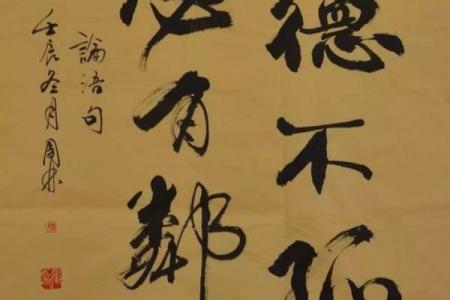 德不孤
必有鄰
論語句
壬辰冬月周成